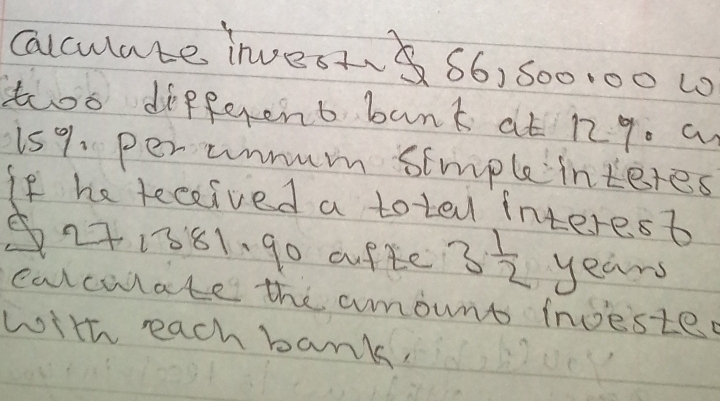 Calculate invest $ 56,500.00 w
two different bank at 12% an
15% per unnum simple interes
if he received a total interest
$ 27,381.90 afte 3 1/2 years
calculate the amount investe
with each bank.